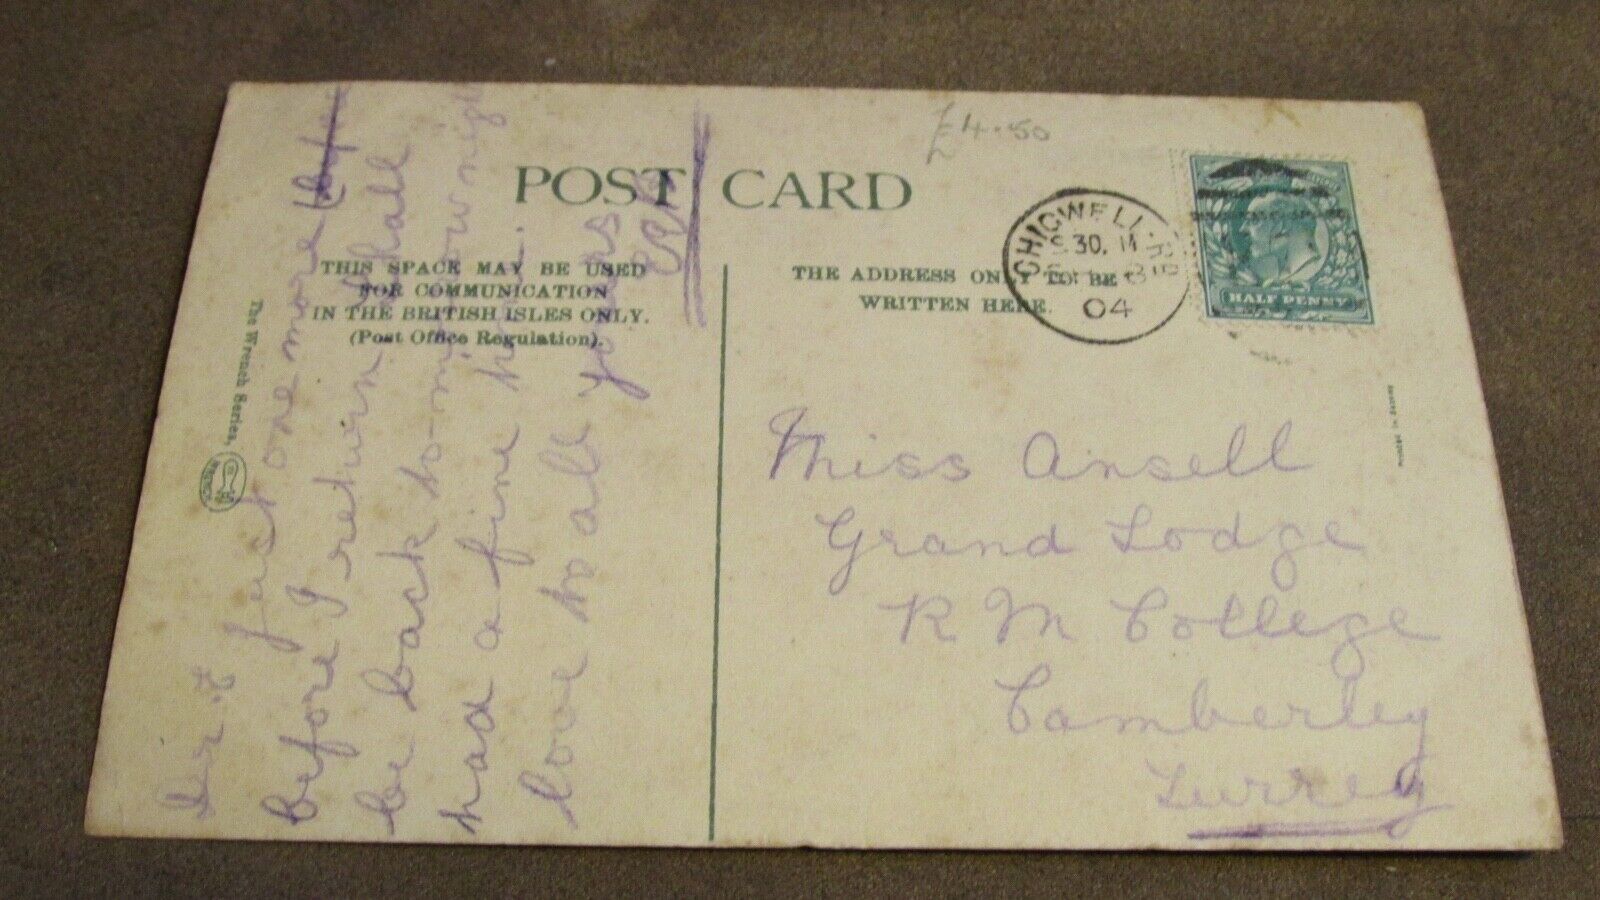 £4.50
POST CARD
THIS SPACE MAY BE USED
FOR COMMUNICATION
IN THE BRITISH ISLES ONLY.
(Post Office Regulation).
THE ADDRESS ONLY TO BE
WRITTEN HERE.
CHIGWELL-RD
30. 11
04
HALF PENNY
The Wrench Series,
Dr. E
just one more
before I return shall
be back to-morrow night
had a fine time.
love to all yours
Miss Ansell
Grand Lodge
R M College
Camberley
Surrey